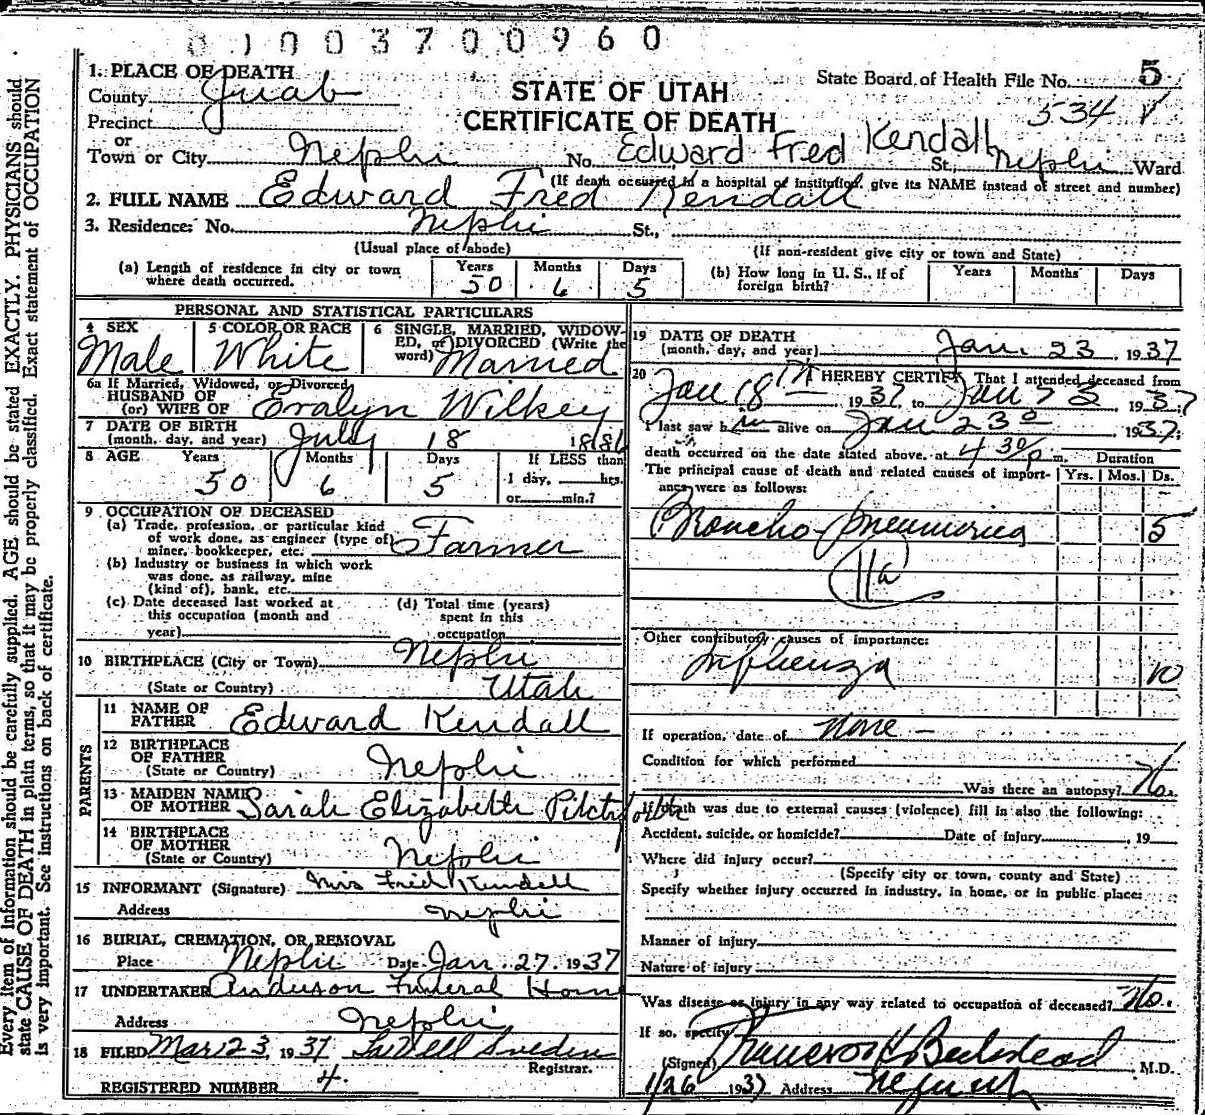 0 1 0 0 3 7 0 0 9 6 0
1. PLACE OF DEATH
County Juab
Precinct
or
Town or City Nephi
STATE OF UTAH
CERTIFICATE OF DEATH
State Board of Health File No. 5
534
No. Edward Fred Kendall St., Nephi Ward
(If death occurred in a hospital or institution, give its NAME instead of street and number)
2. FULL NAME Edward Fred Kendall
3. Residence: No. Nephi St.,
(Usual place of abode) (If non-resident give city or town and State)
(a) Length of residence in city or town where death occurred. Years 50 Months 6 Days 5
(b) How long in U. S., if of foreign birth? Years Months Days
PERSONAL AND STATISTICAL PARTICULARS
4 SEX Male
5 COLOR OR RACE White
6 SINGLE, MARRIED, WIDOWED, or DIVORCED (Write the word) Married
6a If Married, Widowed, or Divorced
HUSBAND OF
(or) WIFE OF Evalyn Wilkey
7 DATE OF BIRTH
(month, day, and year) July 18 1886
8 AGE Years 50 Months 6 Days 5 If LESS than
1 day, hrs.
or min.?
9 OCCUPATION OF DECEASED
(a) Trade, profession, or particular kind
of work done, as engineer (type of)
miner, bookkeeper, etc. Farmer
(b) Industry or business in which work
was done, as railway, mine
(kind of), bank, etc.
(c) Date deceased last worked at
this occupation (month and
year)
(d) Total time (years)
spent in this
occupation
10 BIRTHPLACE (City or Town) Nephi
(State or Country) Utah
PARENTS
11 NAME OF
FATHER Edward Kendall
12 BIRTHPLACE
OF FATHER
(State or Country) Nephi
13 MAIDEN NAME
OF MOTHER Sarah Elizabeth Pitchforth
14 BIRTHPLACE
OF MOTHER
(State or Country) Nephi
15 INFORMANT (Signature) Mrs Fred Kendell
Address Nephi
16 BURIAL, CREMATION, OR REMOVAL
Place Nephi Date Jan. 27. 1937
17 UNDERTAKER Anderson Funeral Home
Address Nephi
18 FILED Mar 23, 1937
Registrar.
REGISTERED NUMBER 4.
19 DATE OF DEATH
(month, day, and year) Jan. 23, 1937
20 I HEREBY CERTIFY That I attended deceased from
Jan 18th 1937, to Jan 23 1937
I last saw him alive on Jan 23 1937;
death occurred on the date stated above, at 4 30 p m. Duration
The principal cause of death and related causes of importance were as follows: Yrs. Mos. Ds.
Broncho-pneumonia 5
11a
Other contributory causes of importance:
Influenza 10
If operation, date of none -
Condition for which performed
Was there an autopsy? No.
If death was due to external causes (violence) fill in also the following:
Accident, suicide, or homicide? Date of injury , 19
Where did injury occur?
(Specify city or town, county and State)
Specify whether injury occurred in industry, in home, or in public place:
Manner of injury
Nature of injury
Was disease or injury in any way related to occupation of deceased? No.
If so, specify
(Signed) Beckstead M.D.
1/26 1937 Address
Every item of information should be carefully supplied. AGE should be stated EXACTLY. PHYSICIANS should
state CAUSE OF DEATH in plain terms, so that it may be properly classified. Exact statement of OCCUPATION
is very important. See instructions on back of certificate.